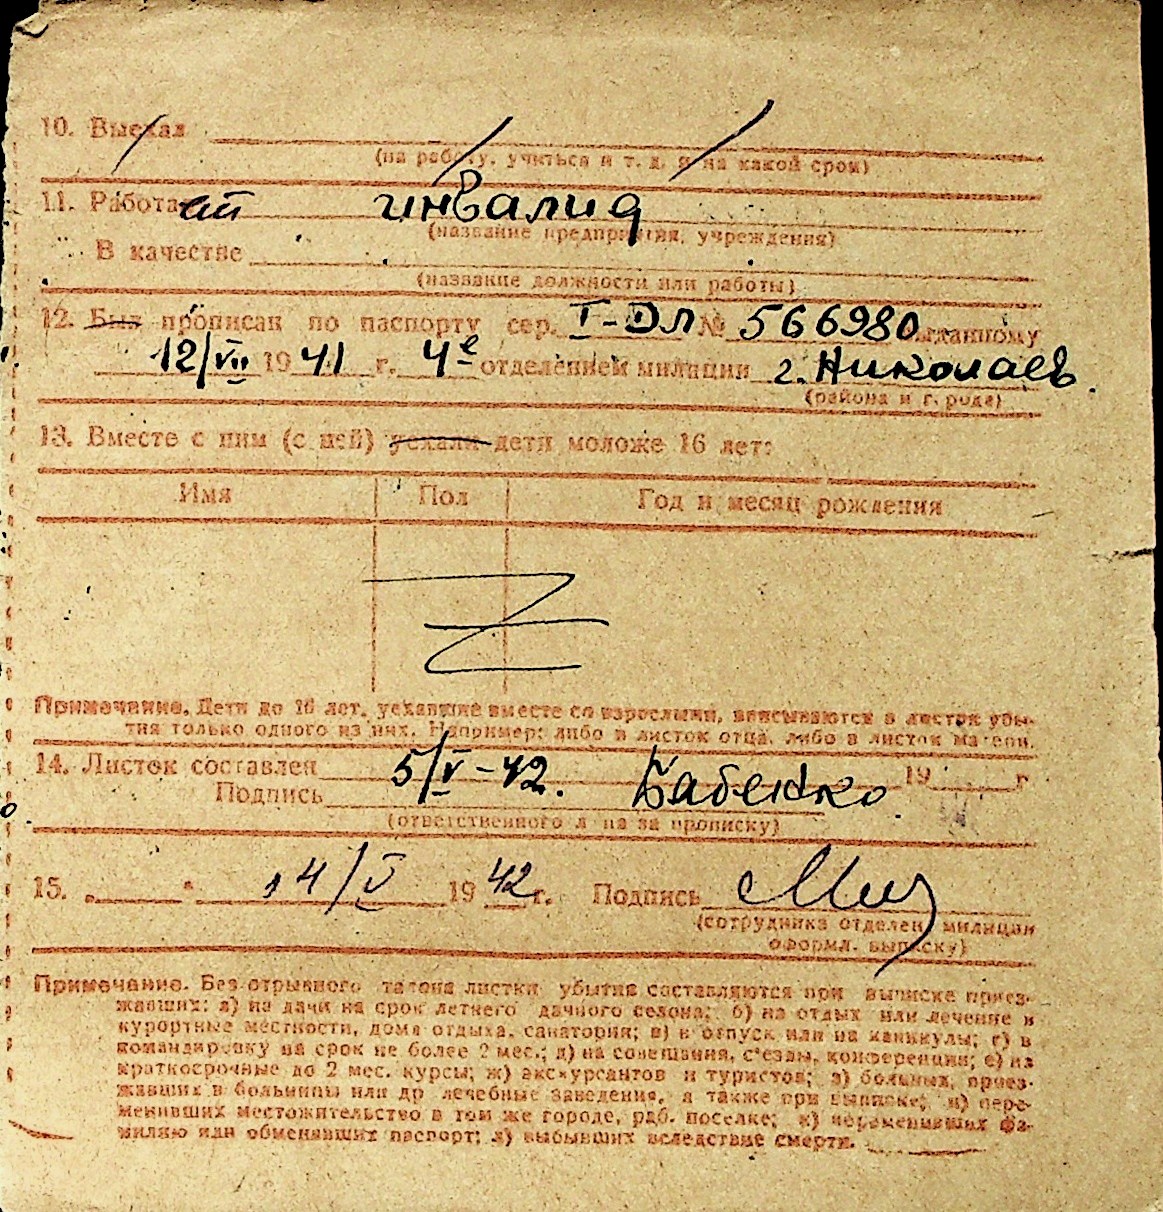 10. Выехал
(на работу, учиться и т. д. и на какой срок)
11. Работает инвалид
(название предприятия, учреждения)
В качестве
(название должности или работы)
12. Был прописан по паспорту сер. I-ДЛ № 566980 выданному
12/VII 1941 г. 4е отделением милиции г. Николаев
(района и города)
13. Вместе с ним (с ней) уехали дети моложе 16 лет:
Имя Пол Год и месяц рождения
Примечание. Дети до 16 лет, уехавшие вместе со взрослыми, вписываются в листок убы-
тия только одного из них. Например: либо в листок отца, либо в листок матери.
14. Листок составлен 5/V-42. 19 г
Подпись Бабенко
(ответственного лица за прописку)
15. „ " 14/V 1942 г. Подпись
(сотрудника отделен. милиции
оформл. выписку)
Примечание. Без отрывного талона листки убытия составляются при выписке приез-
жавших: а) на дачи на срок летнего дачного сезона; б) на отдых или лечение в
курортные местности, дома отдыха, санатории; в) в отпуск или на каникулы; г) в
командировку на срок не более 2 мес.; д) на совещания, съезды, конференции; е) на
краткосрочные до 2 мес. курсы; ж) экскурсантов и туристов; з) больных, приез-
жавших в больницы или др лечебные заведения, а также при выписке; и) пере-
менивших местожительство в том же городе, раб. поселке; к) переменивших фа-
милию или обменявших паспорт; л) выбывших вследствие смерти.